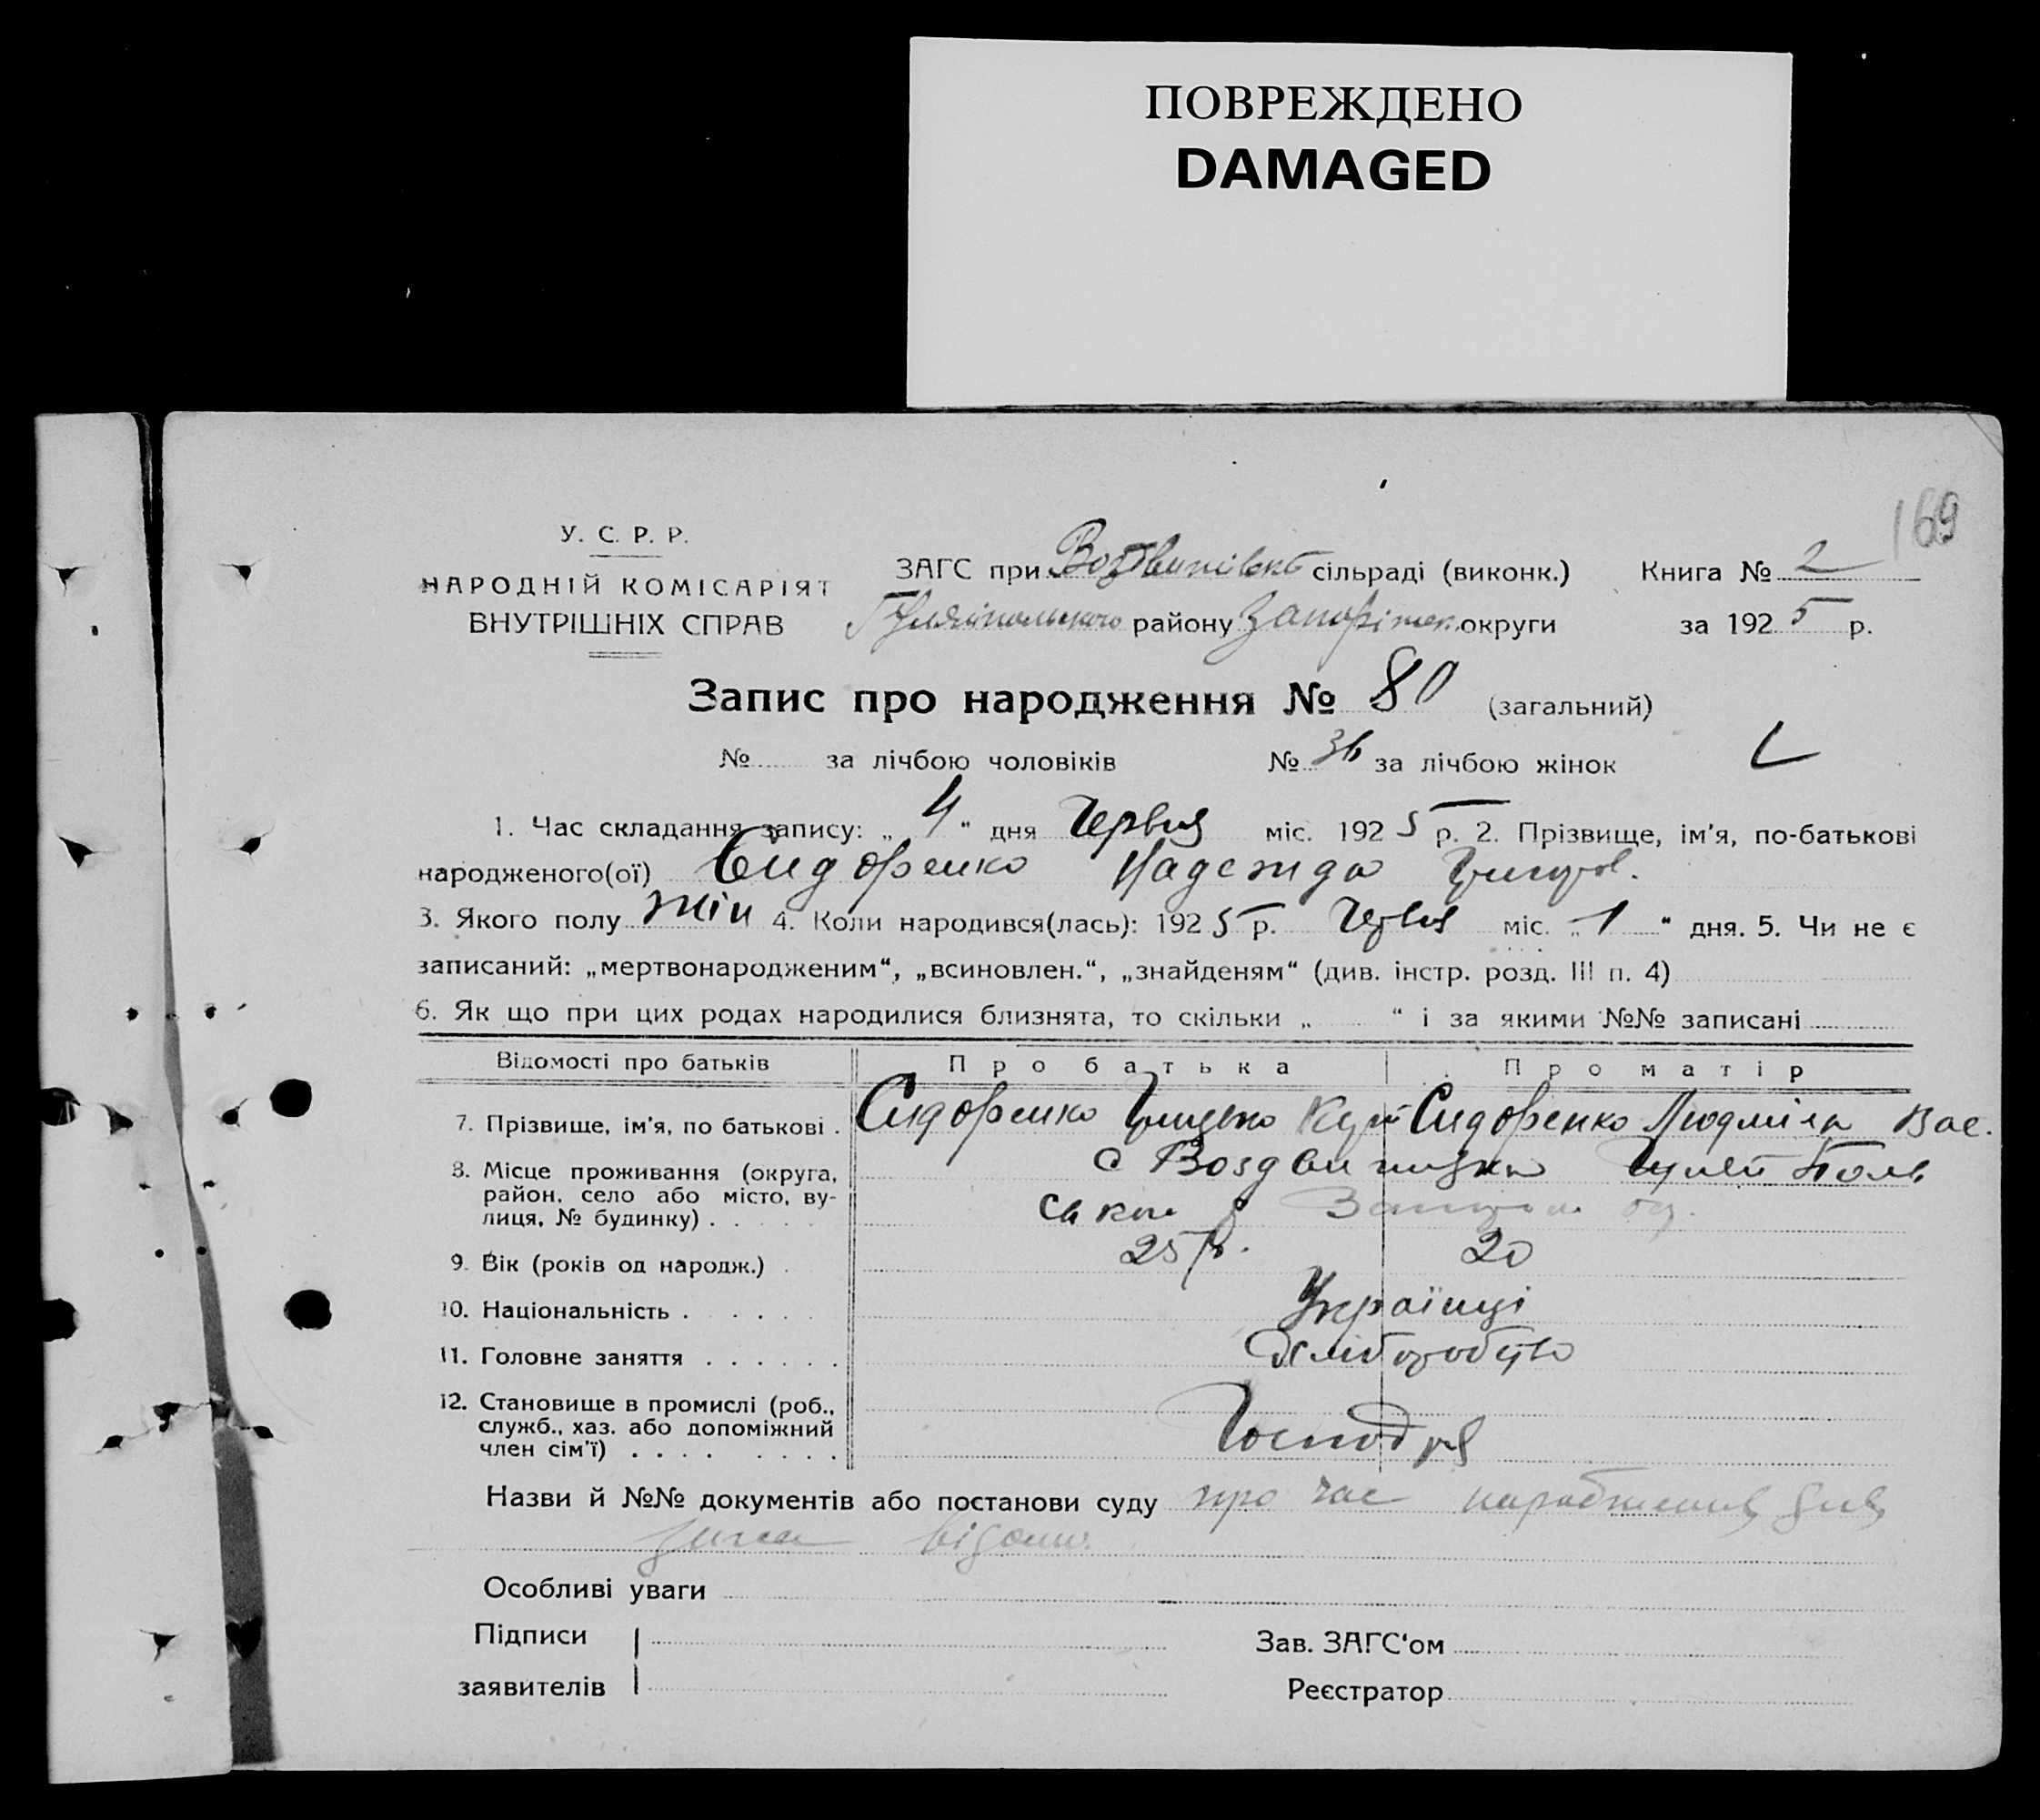 ПОВРЕЖДЕНО
DAMAGED
169
У. С. Р. Р.
НАРОДНІЙ КОМІСАРІЯТ
ВНУТРІШНІХ СПРАВ
ЗАГС при сільраді (виконк.) Книга № 2
Гуляйпольского району Запоріжск. округи за 1925 р.
Запис про народження № 80 (загальний)
№ за лічбою чоловіків № 36 за лічбою жінок
1. Час складання запису: „ 4 “ дня Червня міс. 1925 р. 2. Прізвище, ім'я, по-батькові
народженого(ої) Сидоренко Надежда Григор.
3. Якого полу жін 4. Коли народився(лась): 1925 р. Червня міс. „ 1 “ дня. 5. Чи не є
записаний: „мертвонародженим“, „всиновлен.“, „знайденям“ (див. інстр. розд. III п. 4)
6. Як що при цих родах народилися близнята, то скільки „ “ і за якими №№ записані
Відомості про батьків Про батька Про матір
7. Прізвище, ім'я, по батькові . Сидоренко Сидоренко Людміла Вас.
8. Місце проживання (округа,
район, село або місто, ву-
лиця, № будинку) . . . . . с
9. Вік (років од народж.) . 25 р. 20
10. Національність . . . . . Українці
11. Головне заняття . . . . . . Хліборобство
12. Становище в промислі (роб.,
служб., хаз. або допоміжний
член сім'ї) . . . . . . . . Господ
Назви й №№ документів або постанови суду про час народження
відом.
Особливі уваги
Підписи Зав. ЗАГС‘ом
заявителів Реєстратор